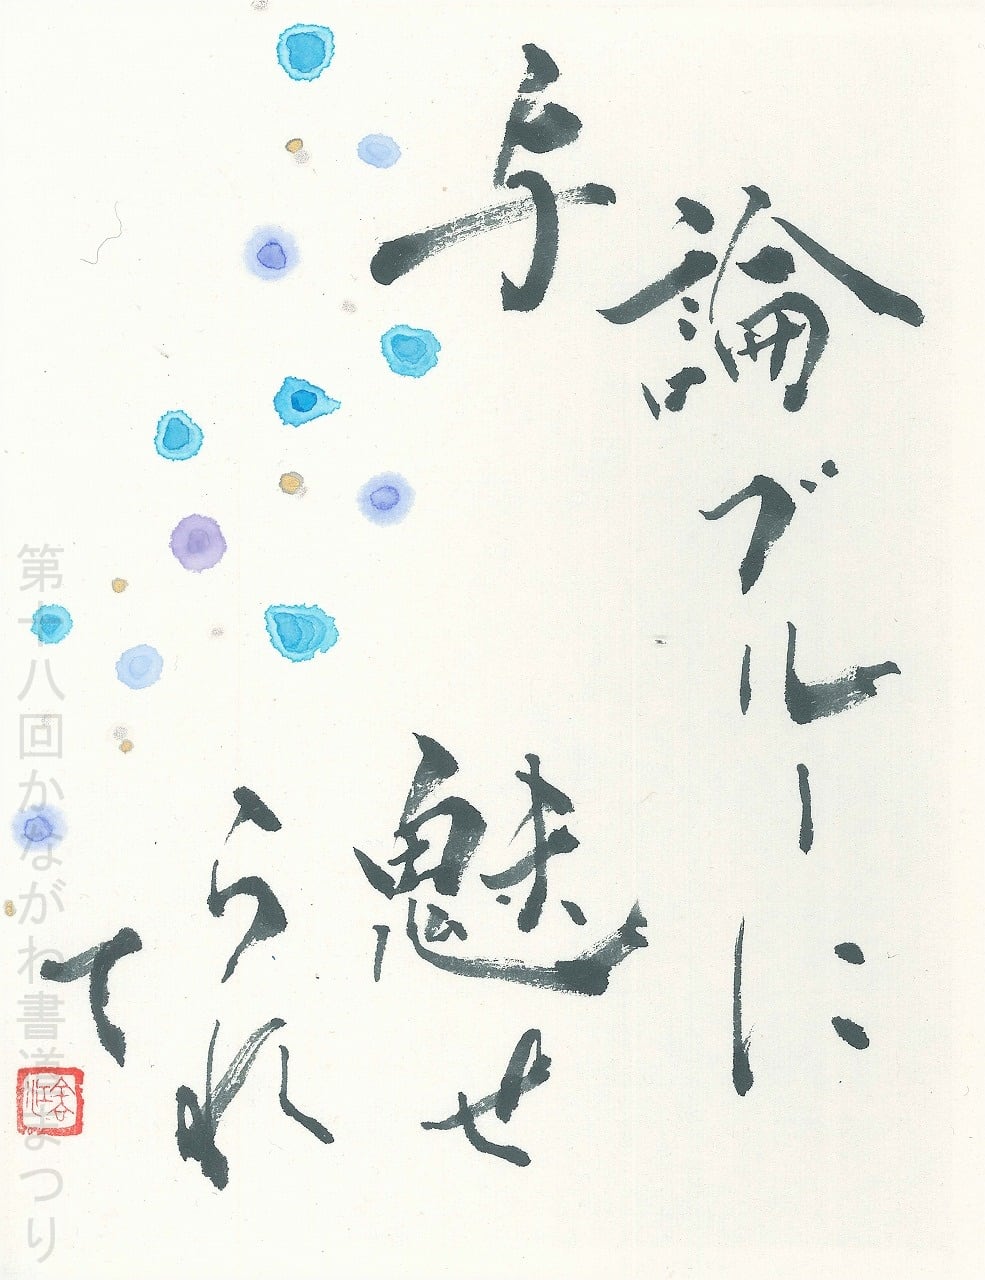 与
論ブルーに
魅せ
られ
て
第十八回かながわ書道まつり